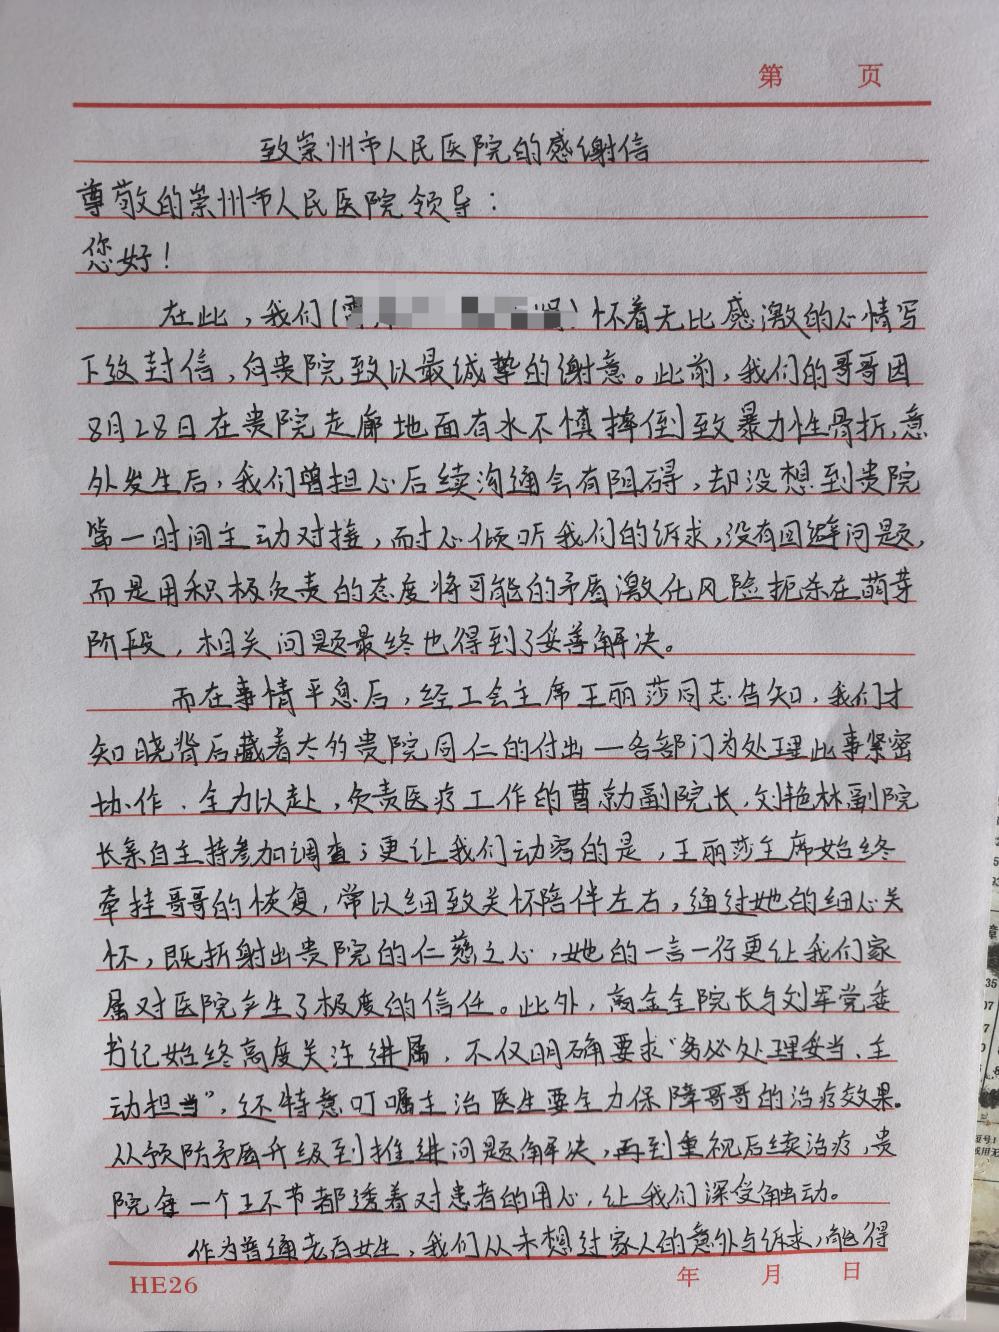 第 页
致崇州市人民医院的感谢信
尊敬的崇州市人民医院领导：
您好！
在此，我们（ ）怀着无比感激的心情写
下这封信，向贵院致以最诚挚的谢意。此前，我们的哥哥因
8月28日在贵院走廊地面有水不慎摔倒致暴力性骨折，意
外发生后，我们曾担心后续沟通会有阻碍，却没想到贵院
第一时间主动对接，耐心倾听我们的诉求，没有回避问题，
而是用积极负责的态度将可能的矛盾激化风险扼杀在萌芽
阶段，相关问题最终也得到了妥善解决。
而在事情平息后，经工会主席王丽莎同志告知，我们才
知晓背后藏着太多贵院同仁的付出—各部门为处理此事紧密
协作、全力以赴，负责医疗工作的曹勍副院长、刘艳林副院
长亲自主持参加调查；更让我们动容的是，王丽莎主席始终
牵挂哥哥的恢复，常以细致关怀陪伴左右，通过她的细心关
怀，既折射出贵院的仁慈之心，她的一言一行更让我们家
属对医院产生了极度的信任。此外，高金全院长与刘军党委
书记始终高度关注进展，不仅明确要求“务必处理妥当、主
动担当”，还特意叮嘱主治医生要全力保障哥哥的治疗效果。
从预防矛盾升级到推进问题解决，再到重视后续治疗，贵
院每一个环节都透着对患者的用心，让我们深受触动。
作为普通老百姓，我们从未想过家人的意外与诉求，能得
HE26 年 月 日